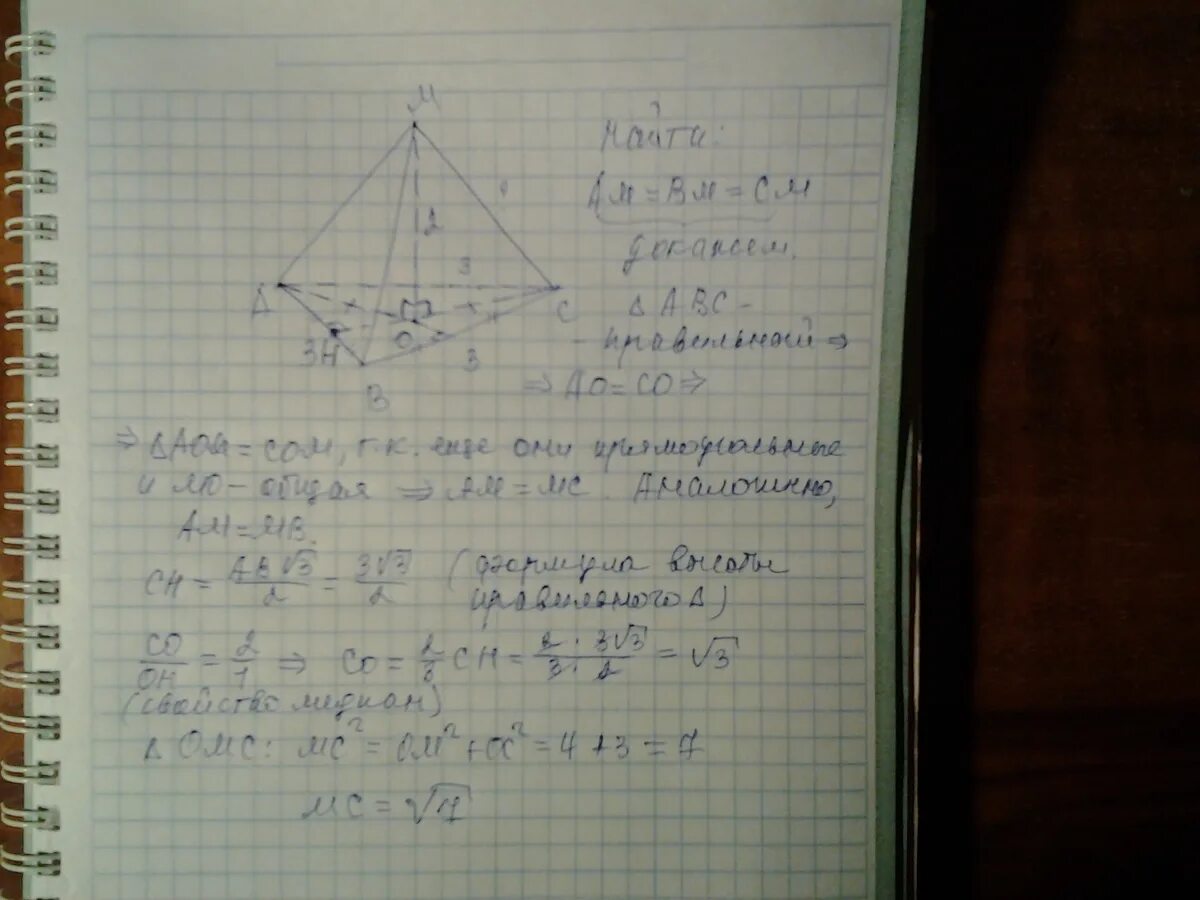 M
Найти:
AM = BM = CM
2
докажем.
3
A
C
Δ ABC –
O
- правильный ⇒
3H
3
⇒ AO = CO ⇒
B
⇒ ΔAOM = COM, т.к. еще они прямоугольные
и MO – общая ⇒ AM = MC. Аналогично,
AM = MB.
CH = AB√3/2 = 3√3/2 (формула высоты
правильного Δ)
CO/OH = 2/1 ⇒ CO = 2/3 CH = 2 · 3√3/3 · 2 = √3
(свойство медиан)
Δ OMC: MC² = OM² + OC² = 4 + 3 = 7
MC = √7